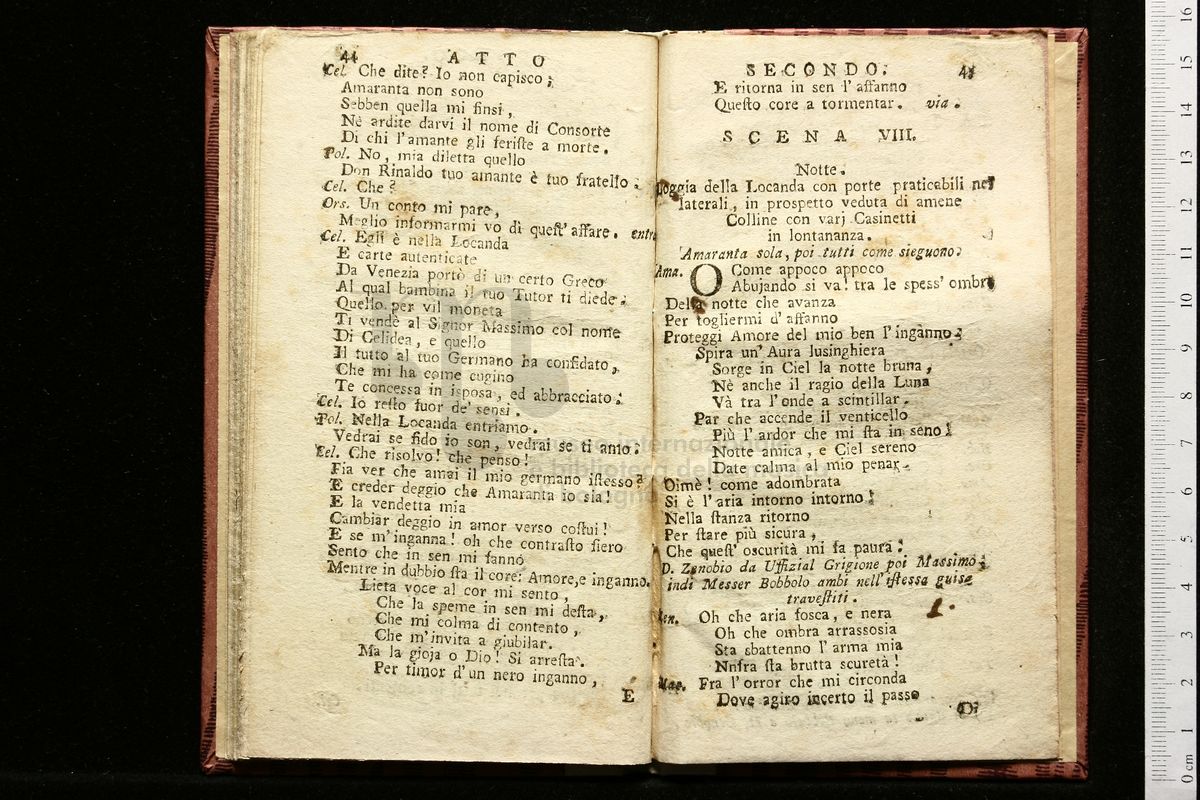 44 ATTO
Cel. Che dite? Io non capisco;
Amaranta non sono
Sebben quella mi finsi,
Nè ardite darvi il nome di Consorte
Di chi l'amante gli feriste a morte.
Pol. No, mia diletta quello
Don Rinaldo tuo amante è tuo fratello.
Cel. Che?
Ors. Un conto mi pare,
Meglio informarmi vo dì quest' affare. entra
Cel. Egli è nella Locanda
E carte autenticate
Da Venezia portò di un certo Greco
Al qual bambina il tuo Tutor ti diede.
Quello per vil moneta
Ti vendè al Signor Massimo col nome
Di Celidea, e quello
Il tutto al tuo Germano ha confidato,
Che mi ha come cugino
Te concessa in isposa, ed abbracciato.
Cel. Io resto fuor de' sensi.
Pol. Nella Locanda entriamo.
Vedrai se fido io son, vedrai se ti amo.
Cel. Che risolvo! che penso!
Fia ver che amai il mio germano istesso?
E creder deggio che Amaranta io sia!
E la vendetta mia
Cambiar deggio in amor verso costui!
E se m'inganna! oh che contrasto fiero
Sento che in sen mi fanno
Mentre in dubbio sta il core: Amore, e inganno.
Lieta voce al cor mi sento,
Che la speme in sen mi desta,
Che mi colma di contento,
Che m'invita a giubilar.
Ma la gioja o Dio! Si arresta.
Per timor d'un nero inganno,
E
SECONDO. 45
E ritorna in sen l'affanno
Questo core a tormentar. via.
SCENA VIII.
Notte.
Loggia della Locanda con porte praticabili nei
laterali, in prospetto veduta di amene
Colline con varj Casinetti
in lontananza.
Amaranta sola, poi tutti come sieguono.
Ama. O Come appoco appoco
Abujando si va! tra le spess' ombre
Della notte che avanza
Per togliermi d'affanno
Proteggi Amore del mio ben l'inganno.
Spira un' Aura lusinghiera
Sorge in Ciel la notte bruna,
Nè anche il ragio della Luna
Và tra l'onde a scintillar.
Par che accende il venticello
Più l'ardor che mi sta in seno!
Notte amica, e Ciel sereno
Date calma al mio penar.
Oimè! come adombrata
Si è l'aria intorno intorno!
Nella stanza ritorno
Per stare più sicura,
Che quest' oscurità mi fa paura.
D. Zenobio da Uffizial Grigione poi Massimo,
indi Messer Bobbolo ambi nell'istessa guisa
travestiti.
Zen. Oh che aria fosca, e nera
Oh che ombra arrassosia
Sta sbattenno l'arma mia
Nnfra sta brutta scuretà!
Mas. Fra l'orror che mi circonda
Dove agiro incerto il passo